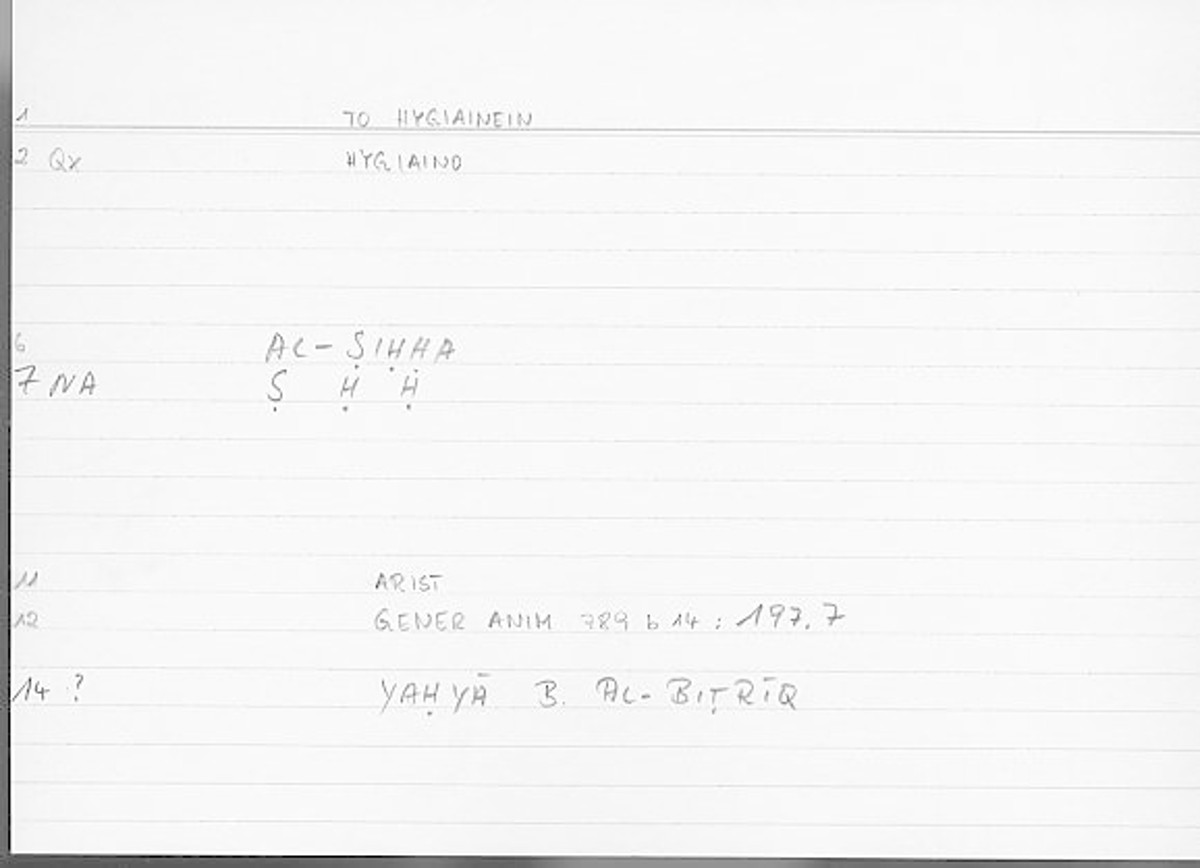 1 TO HYGIAINEIN
2 Qx HYGIAINO
6 AL-ṢIḤḤA
7 NA Ṣ Ḥ Ḥ
11 ARIST
12 GENER ANIM 789 b 14 : 197.7
14 ? YAḤYĀ B. AL-BIṬRĪQ